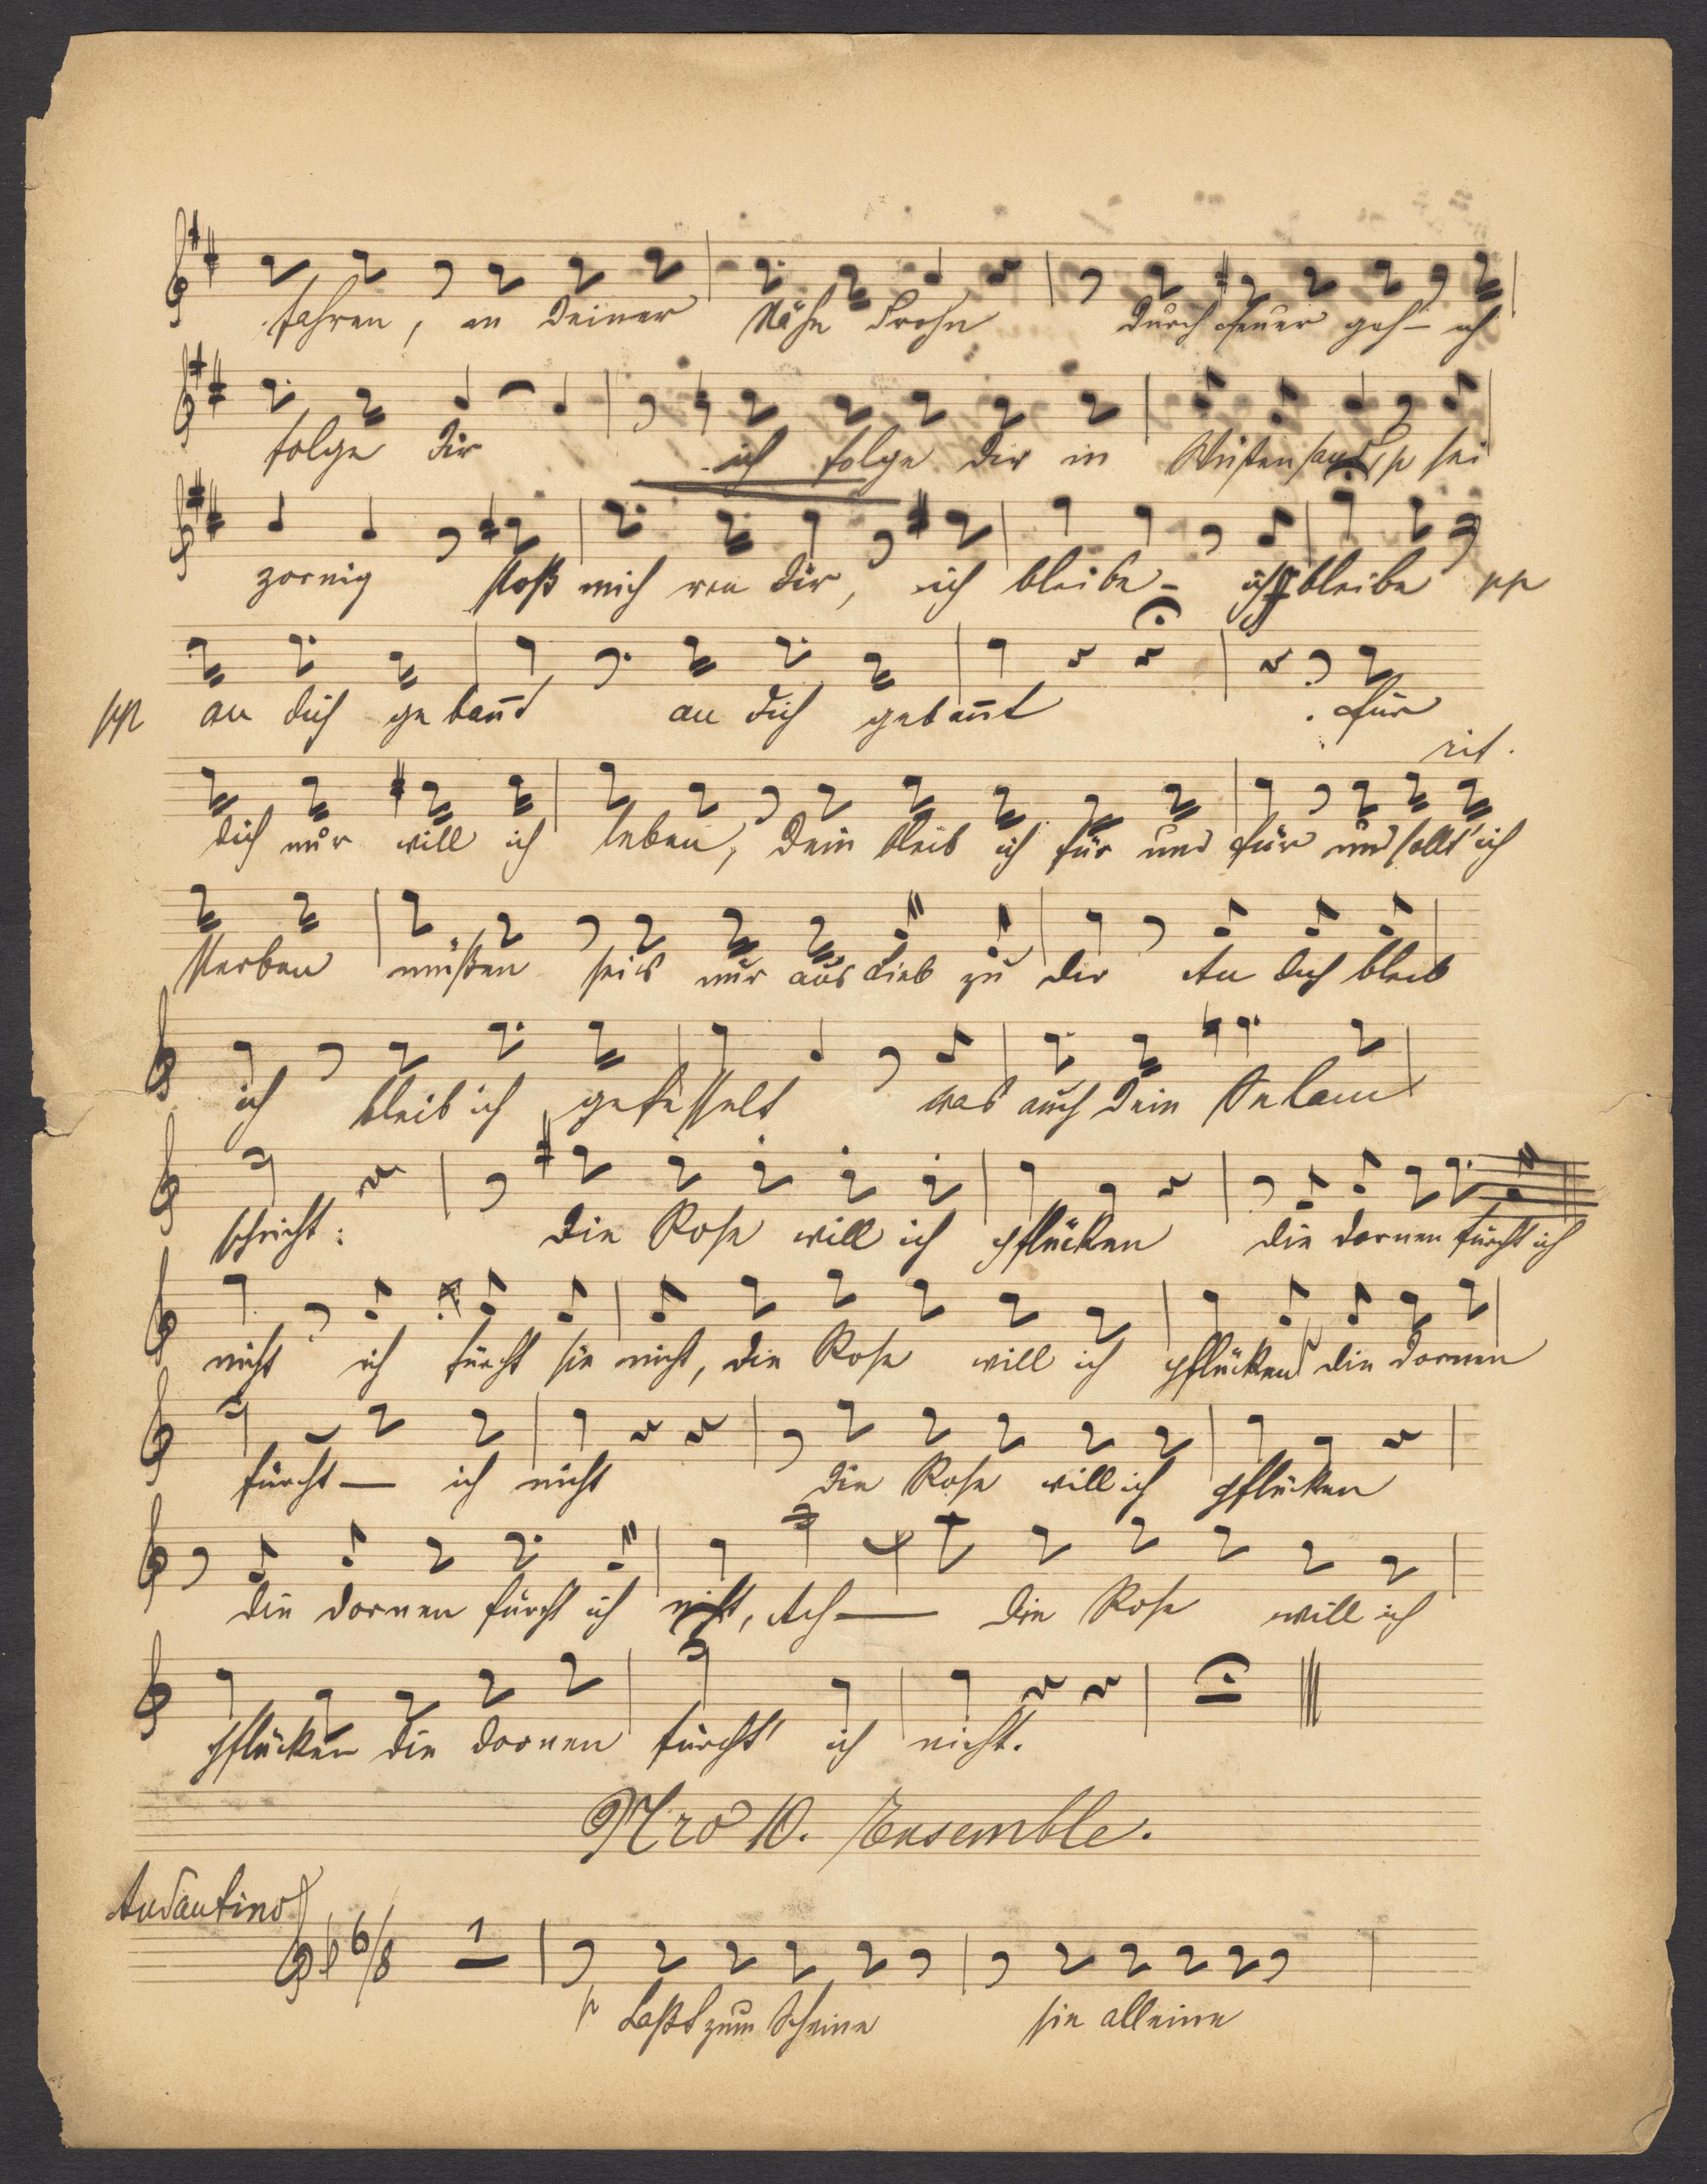 fahren, in Deiner Nähe Frohn durch Feuer geh – ich
folge dir ich folge dir in Wüstensand, p sei
zornig stoß mich von dir, ich bleibe – ich bleibe pp
pp an dich gebañt an dich gebañt . für
rit.
dich nur will ich leben, dein bleib ich für und für und sollt' ich
sterben müßen sei's nur aus Lieb zu dir An dich bleib
ich bleib ich gefesselt was auch dein Selam
spricht: die Rose will ich pflücken die dornen fürcht ich
nicht ich fürcht sie nicht, die Rose will ich pflücken die dornen
fürcht — ich nicht die Rose will ich pflücken
die dornen fürcht ich nicht, Ach — die Rose will ich
pflücken die dornen fürcht' ich nicht.
Nro 10. Ensemble.
Andantino
6/8 1
p Laßt zum Scheine sie alleine